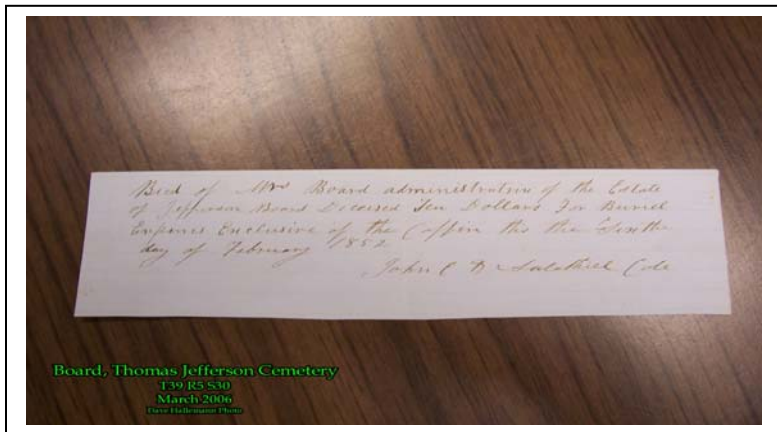 Recd of Mrs Board administratrix of the Estate
of Jefferson Board Deceised Ten Dollars For Buriel
Expenses Exclusive of the Coffin this the
day of February 1852
John C Cole
Board, Thomas Jefferson Cemetery
T39 R5 S30
March 2006
Dave Hallemann Photo